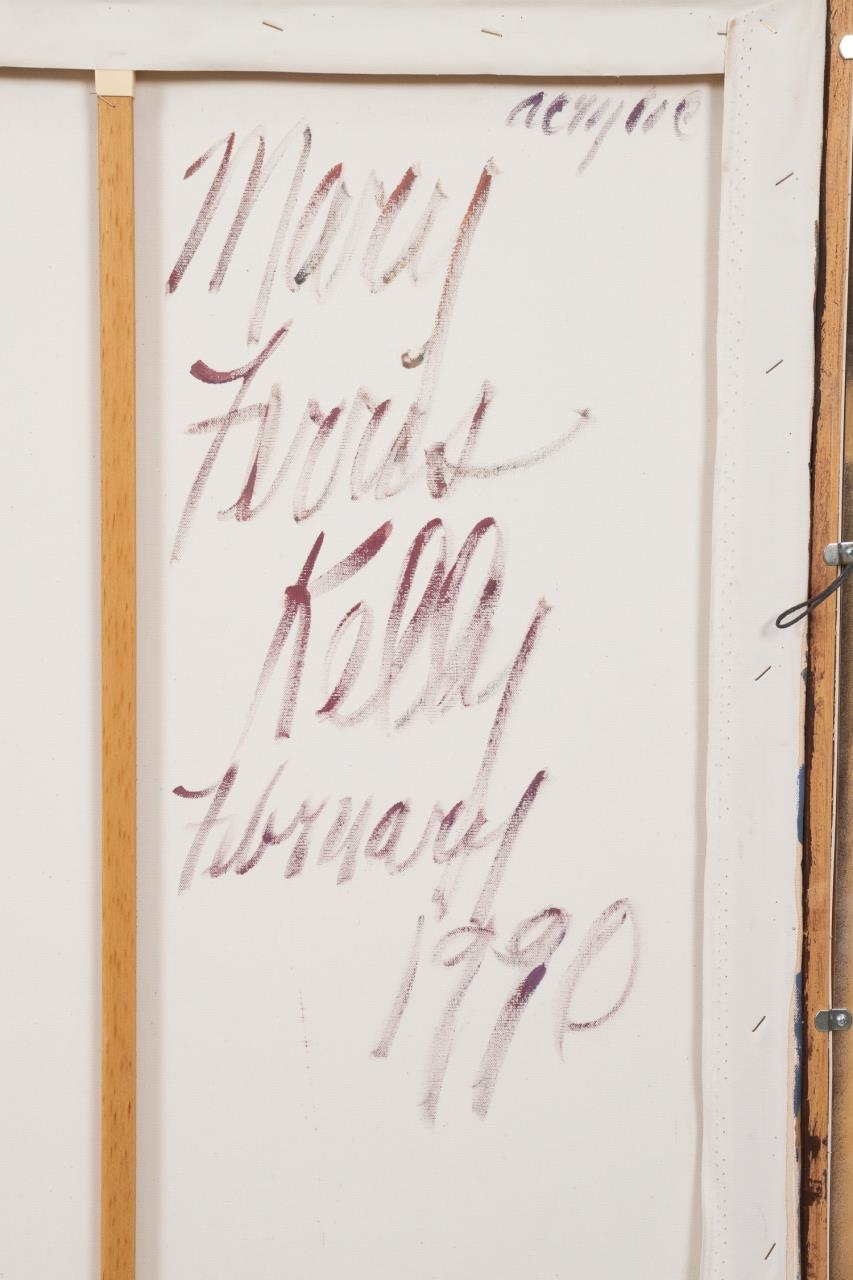 acrylic
Mary
Ferris
Kelly
February
1990